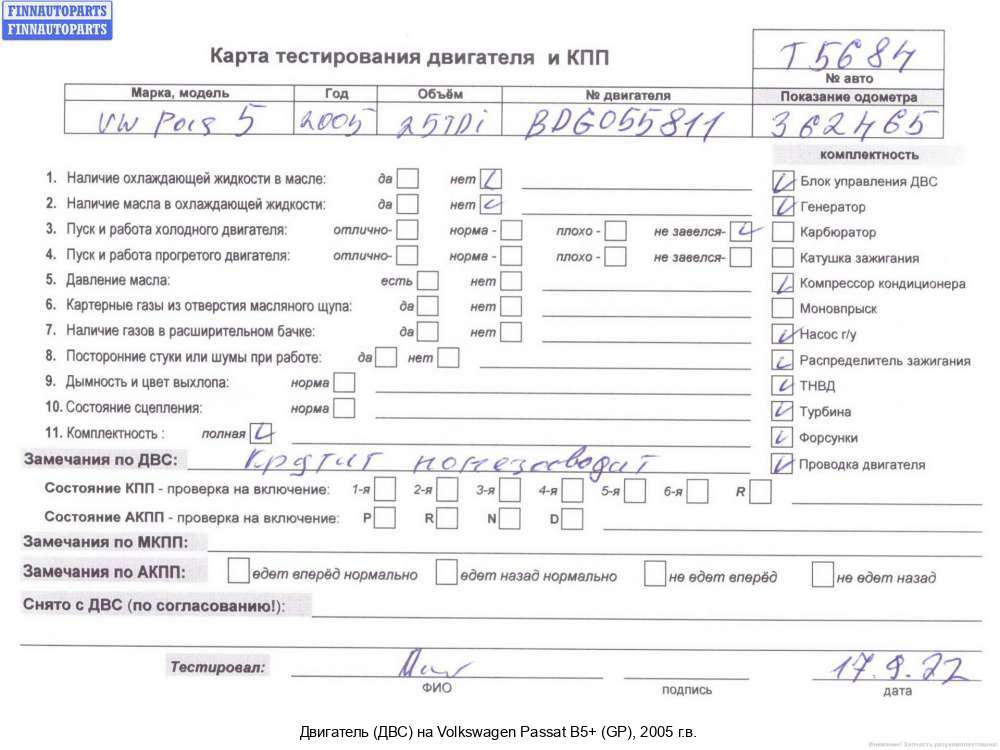 FINNAUTOPARTS
FINNAUTOPARTS
Карта тестирования двигателя и КПП
T5684
№ авто
Марка, модель Год Объём № двигателя Показание одометра
VW 5 2005 25TDi BDG055811 362465
комплектность
1. Наличие охлаждающей жидкости в масле: да нет
Блок управления ДВС
2. Наличие масла в охлаждающей жидкости: да нет
Генератор
3. Пуск и работа холодного двигателя: отлично- норма - плохо - не завелся-
Карбюратор
4. Пуск и работа прогретого двигателя: отлично- норма - плохо - не завелся-
Катушка зажигания
5. Давление масла: есть нет
Компрессор кондиционера
6. Картерные газы из отверстия масляного щупа: да нет
Моновпрыск
7. Наличие газов в расширительном бачке: да нет
Насос г/у
8. Посторонние стуки или шумы при работе: да нет
Распределитель зажигания
9. Дымность и цвет выхлопа: норма
ТНВД
10. Состояние сцепления: норма
Турбина
11. Комплектность : полная
Форсунки
Замечания по ДВС: крутит
Проводка двигателя
Состояние КПП - проверка на включение: 1-я 2-я 3-я 4-я 5-я 6-я R
Состояние АКПП - проверка на включение: P R N D
Замечания по МКПП:
Замечания по АКПП: едет вперёд нормально едет назад нормально не едет вперёд не едет назад
Снято с ДВС (по согласованию!):
Тестировал: 17.9.22
ФИО подпись дата
Двигатель (ДВС) на Volkswagen Passat B5+ (GP), 2005 г.в.